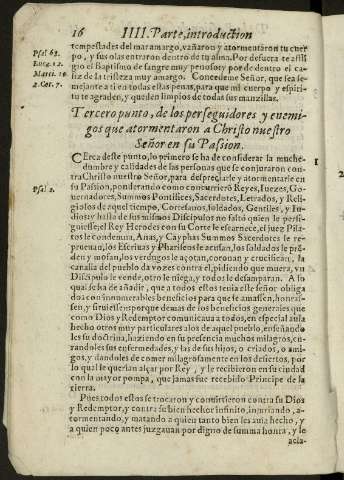 16 IIII. Parte, introduction
Psal 68.
Luc. 12.
Marci. 10.
2. Cor. 7.
tempestades del mar amargo, vañaron y atormentaron tu cuer
po, y sus olas entraron dentro de tu alma. Por defuera te afli
gio el Baptismo de sangre muy penoso: y por de dentro el ca-
liz de la tristeza muy amargo. Concedeme Señor, que sea se-
mejante a ti en todas estas penas, para que mi cuerpo y espiri-
tu te agraden, y queden limpios de todas sus manzillas.
Tercero punto, de los perseguidores y enemi-
gos que atormentaron a Christo nuestro
Señor en su Passion.
Psal. 2.
Cerca deste punto, lo primero se ha de considerar la muche-
dumbre y calidades de las personas que se conjuraron con-
tra Christo nuestro Señor, para despreciarle y atormentarle en
su Passion, ponderando como concurrierõ Reyes, Iuezes, Go-
uernadores, Summos Pontifices, Sacerdotes, Letrados, y Reli-
giosos de aquel tiempo, Cortesanos, soldados, Gentiles, y Iu-
dios: y hasta de sus mismos Discipulos no faltò quien le persi-
guiesse, el Rey Herodes con su Corte le escarnece, el juez Pila-
tos le condena, Anas, y Cayphas Summos Sacerdotes le repre-
prueuan, los Escriuas y Phariseos le acusan, los soldados le prẽ-
den y mofan, los verdugos le açotan, coronan y crucifican, la
canalla del pueblo da vozes contra el, pidiendo que muera, vn
Discipulo le vende, otro le niega, y todos le desamparan. A lo
qual se ha de añadir, que a todos estos tenia este señor obliga
dos con innumerables beneficios para que le amassen, honras-
sen, y siruiessen: porque demas de los beneficios generales que
como Dios y Redemptor comunicaua a todos, en especial auia
hecho otros muy particulares a los de aquel pueblo, enseñando
les su doctrina, haziendo en su presencia muchos milagros, cu-
randoles sus enfermedades, y las de sus hijos, o criados, o ami-
gos, y dandoles de comer milagrosamente en los desiertos, por
lo qual le querian alçar por Rey, y le recibieron en su ciudad
con la mayor pompa, que jamas fue recebido Principe de la
tierra.
Pues todos estos se trocaron y conuirtieron contra su Dios
y Redemptor, y contra su bien hechor infinito, injuriando, a-
tormentando, y matando a quien tanto bien les auia hecho, y
a quien poco antes juzgauan por digno de summa honra, y le
acla-